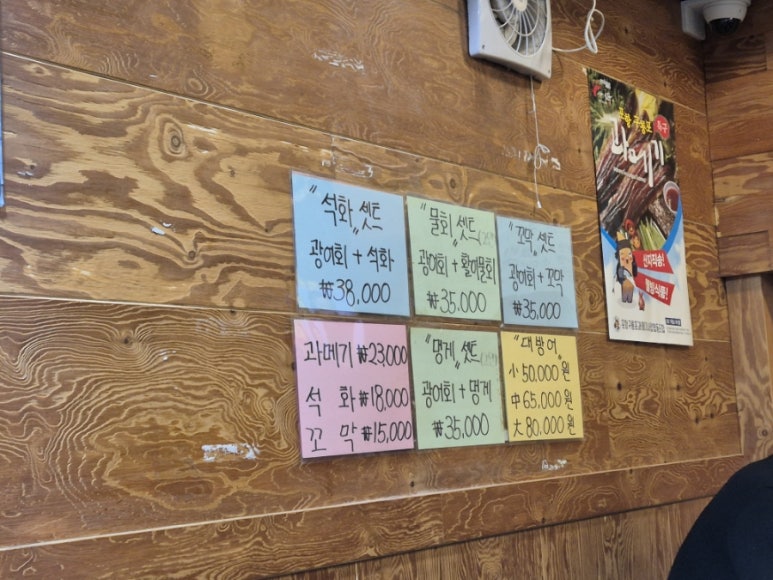 "석화 셋트"
광어회 + 석화
₩38,000
"물회 셋트"
광어회 + 활어물회
₩35,000
"꼬막 셋트"
광어회 + 꼬막
₩35,000
과메기 ₩23,000
석 화 ₩18,000
꼬 막 ₩15,000
"멍게" 셋트
광어회 + 멍게
₩35,000
"대방어"
小 50,000원
中 65,000원
大 80,000원
포항 구룡포
과메기
산지직송!
웰빙식품!